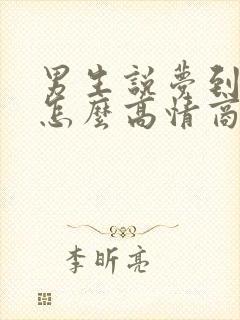 男生說夢到
怎麼高情商
李昕亮